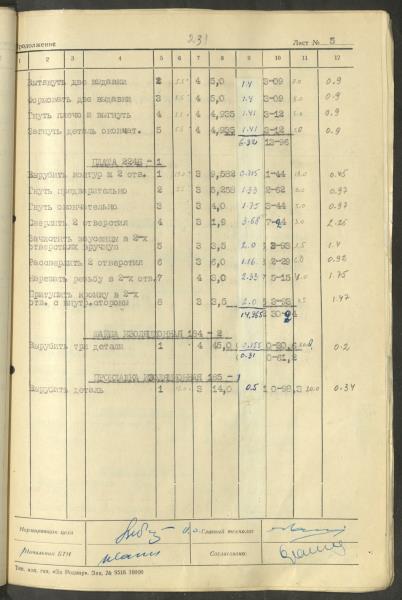 Продолжение 231 Лист № 5
1 2 3 4 5 6 7 8 9 10 11 12
Вытянуть две выдавки 2 5.5 4 5,0 1.4 3-09 0.9
Формовать две выдавки 3 5.5 4 5,0 1.4 3-09 0.9
Гнуть плечо и выгнуть 4 5.5 4 4,935 1.41 3-12 0.9
Загнуть деталь окончат. 5 5.5 4 4,935 1.41 3-12 0.9
13-96
ПЛАТА 2248 - 1
Вырубить контур и 2 отв. 1 3 9,582 1-44 0.45
Гнуть предварительно 2 3 5,258 1.33 2-62 0.97
Гнуть окончательно 3 3 4,0 1.75 3-44 0.97
Сверлить 2 отверстия 4 3 1,9 3.68 2.25
Зачистить заусенцы в 2-х
отверстиях вручную 5 3 3,5 2.0 1.4
Рассверлить 2 отверстия 6 3 6,0 1.16 2-29 0.92
Нарезать резьбу в 2-х отв. 7 4 3,0 2.33 5-15 1.75
Притупить кромку в 2-х
отв. с внутр. стороны 8 3 3,5 2.0 1.47
14,955
ШАЙБА ИЗОЛЯЦИОННАЯ 184 - 2
Вырубить три детали 1 4 45,0 0.155 0-20,6 0.2
0.31 0-61,2
ПРОКЛАДКА ИЗОЛЯЦИОННАЯ 185 - 1
Вырубить деталь 1 3 14,0 0.5 0-98,3 0.34
Нормировщик цеха Главный технолог
Начальник БТН Согласовано:
Тип. изд. газ. «За Родину». Зак. № 9516 10000